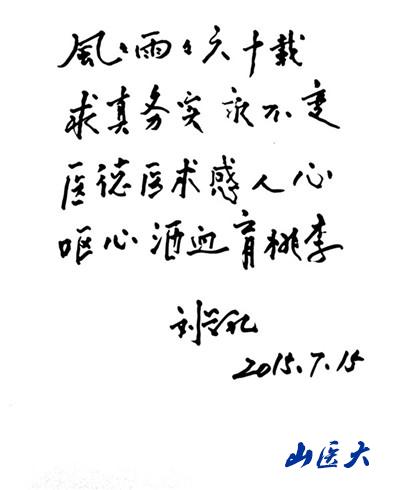 風々雨々六十载
求真务实永不变
医德医术感人心
呕心洒血育桃李
2015.7.15
山医大